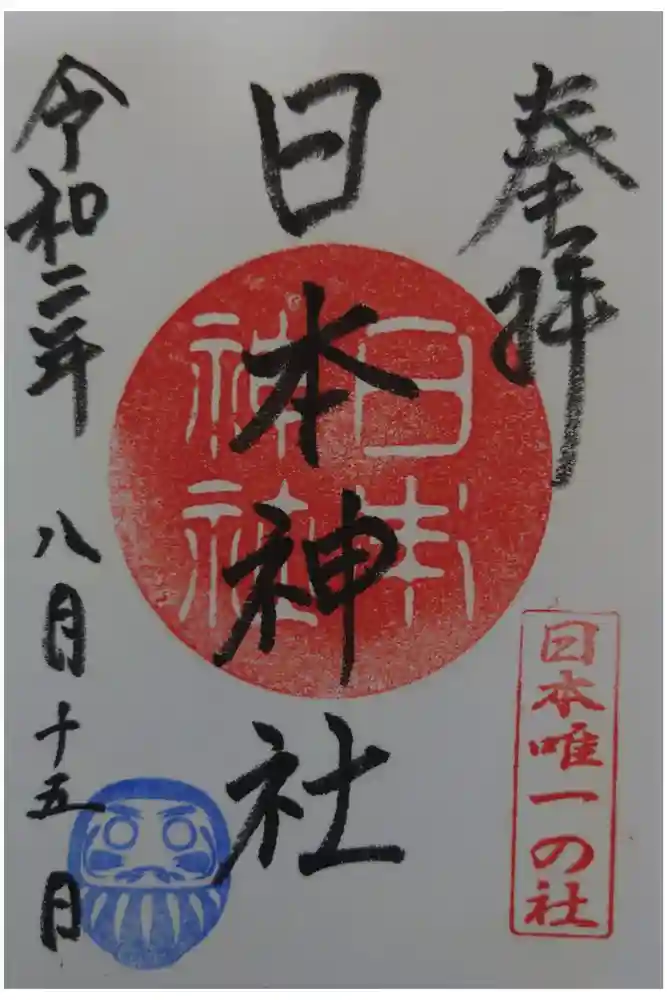 奉拝
日本唯一の社
日本神社
日本
神社
令和二年
八月十五日